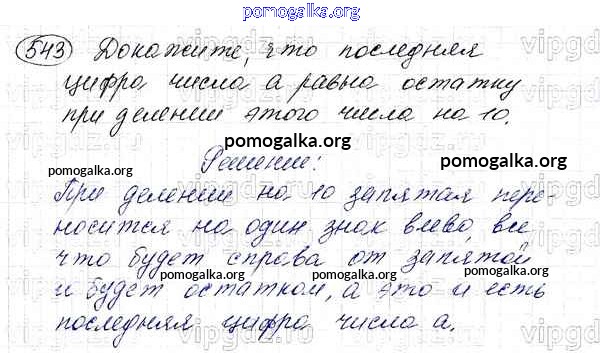 pomogalka.org
543 Докажите, что последняя
цифра числа а равна остатку
при делении этого числа на 10.
pomogalka.org
pomogalka.org
Решение:
При делении на 10 запятая пере-
носится на один знак влево, все
что будет справа от запятой
pomogalka.org
pomogalka.org
pomogalka.org
и будет остатком, а это и есть
последняя цифра числа а.